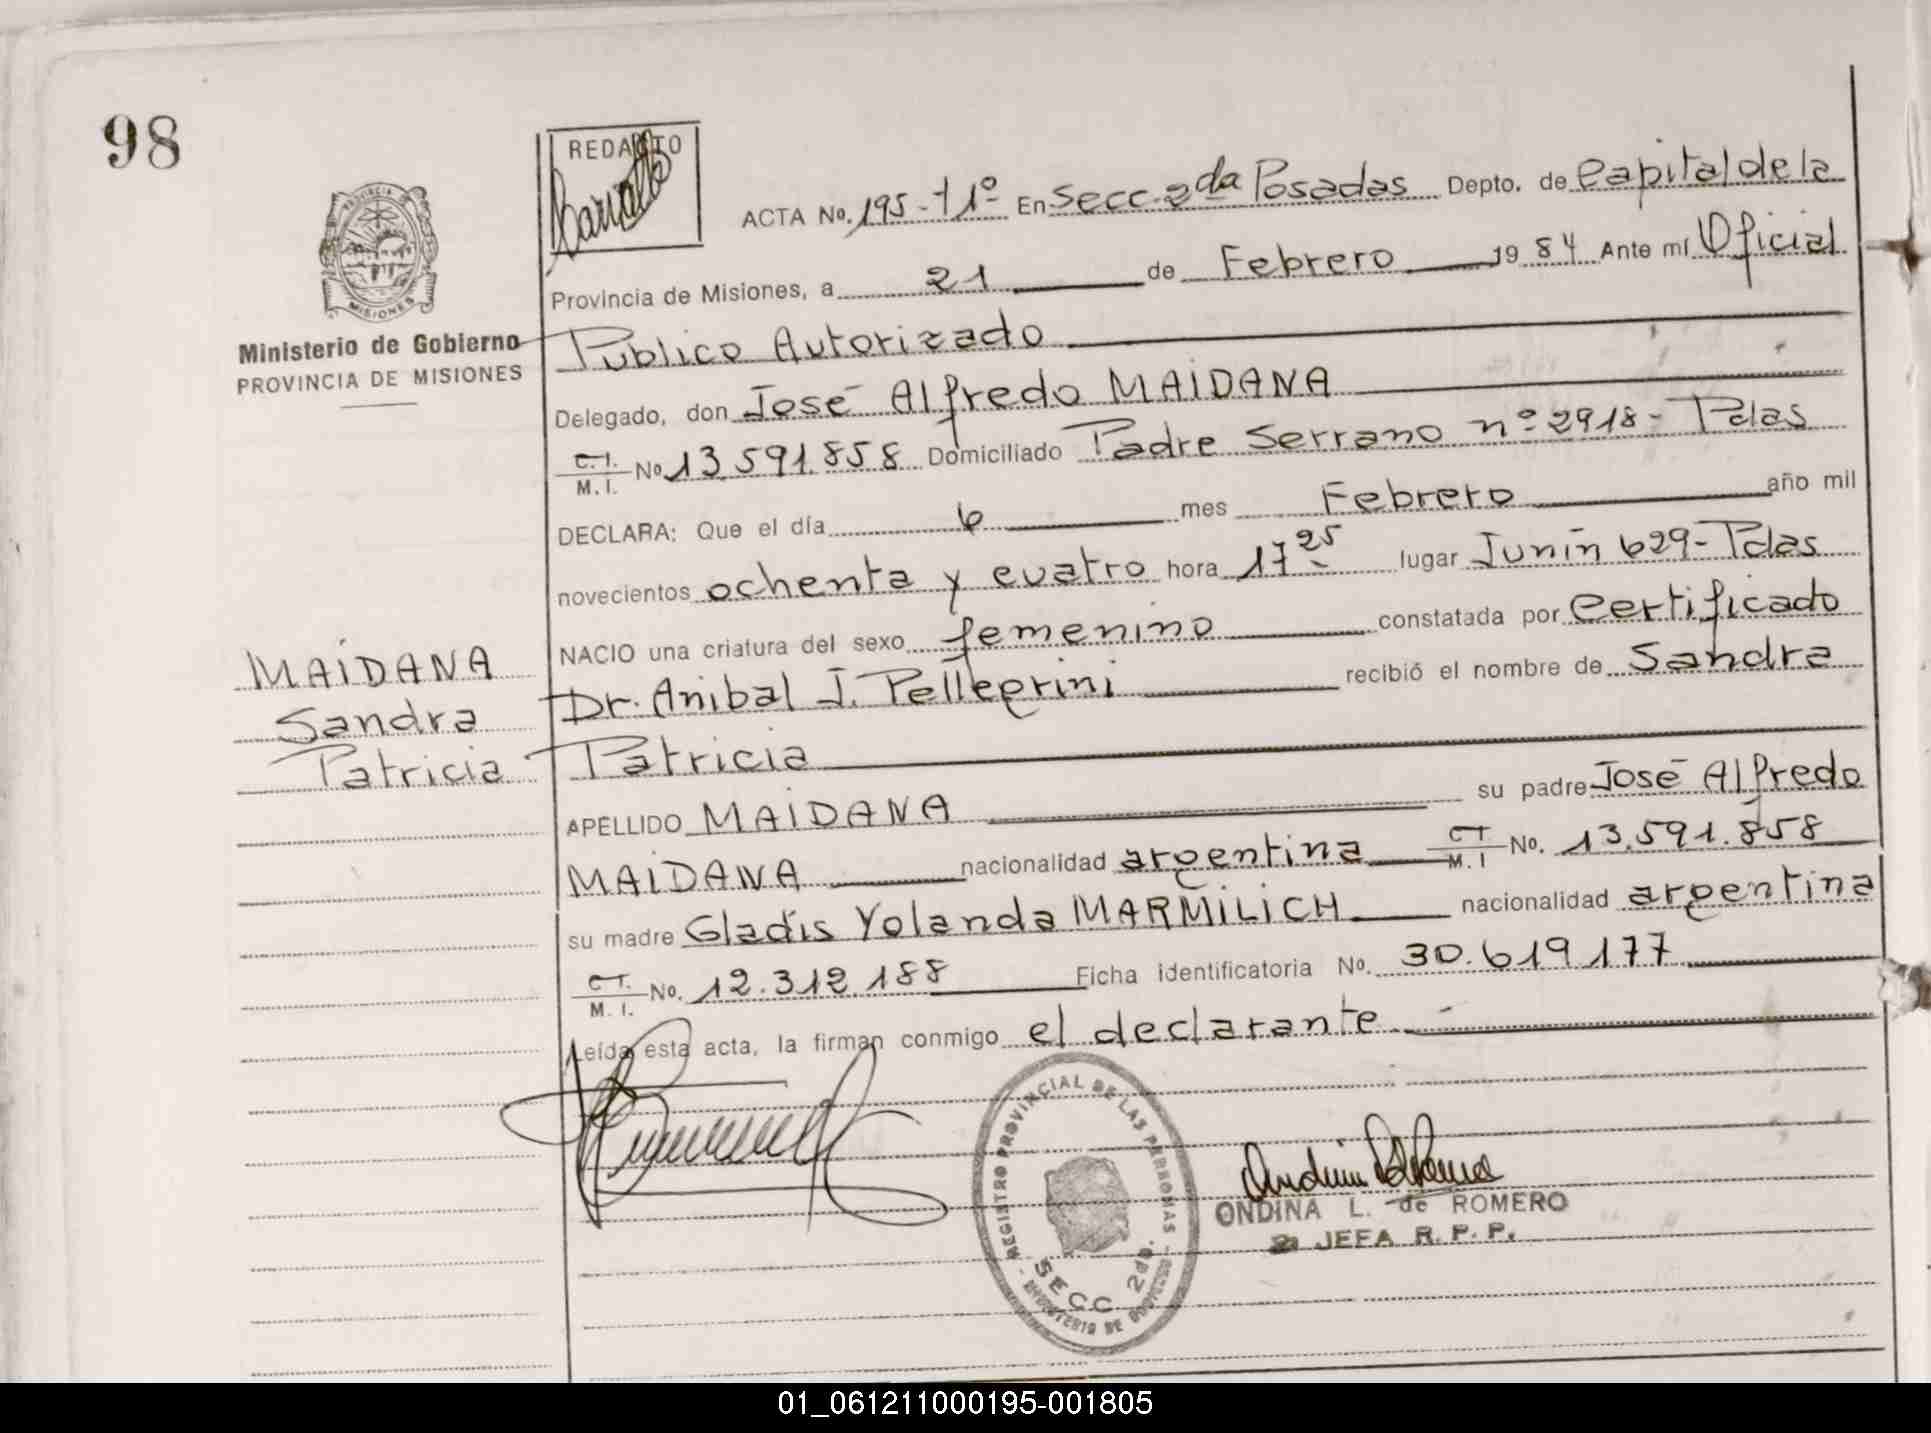 98
REDACTO
ACTA No. 195-t1º En Secc. 2da Posadas Depto. de Capital de la
PROVINCIA MISIONES
Provincia de Misiones, a 21 de Febrero 1984 Ante mí Oficial
Ministerio de Gobierno
PROVINCIA DE MISIONES
Público Autorizado
Delegado, don José Alfredo MAIDANA
C.I. M.I. No 13.591.858 Domiciliado Padre Serrano nº 2918- Pdas
DECLARA: Que el día 6 mes Febrero año mil
novecientos ochenta y cuatro hora 17 25 lugar Junín 629- Pdas
NACIO una criatura del sexo femenino constatada por Certificado
MAIDANA
Dr. Anibal J. Pellegrini recibió el nombre de Sandra
Sandra
Patricia
Patricia
APELLIDO MAIDANA su padre José Alfredo
MAIDANA nacionalidad argentina C.I. M.I No. 13.591.858
su madre Gladis Yolanda MARMILICH nacionalidad argentina
C.I. M.I. No. 12.312.188 Ficha identificatoria No. 30.619.177
Leída esta acta, la firman conmigo el declarante
REGISTRO PROVINCIAL DE LAS PERSONAS - MINISTERIO DE GOBIERNO -
SECC 2da.
ONDINA L. de ROMERO
JEFA R.P.P.
01_061211000195-001805